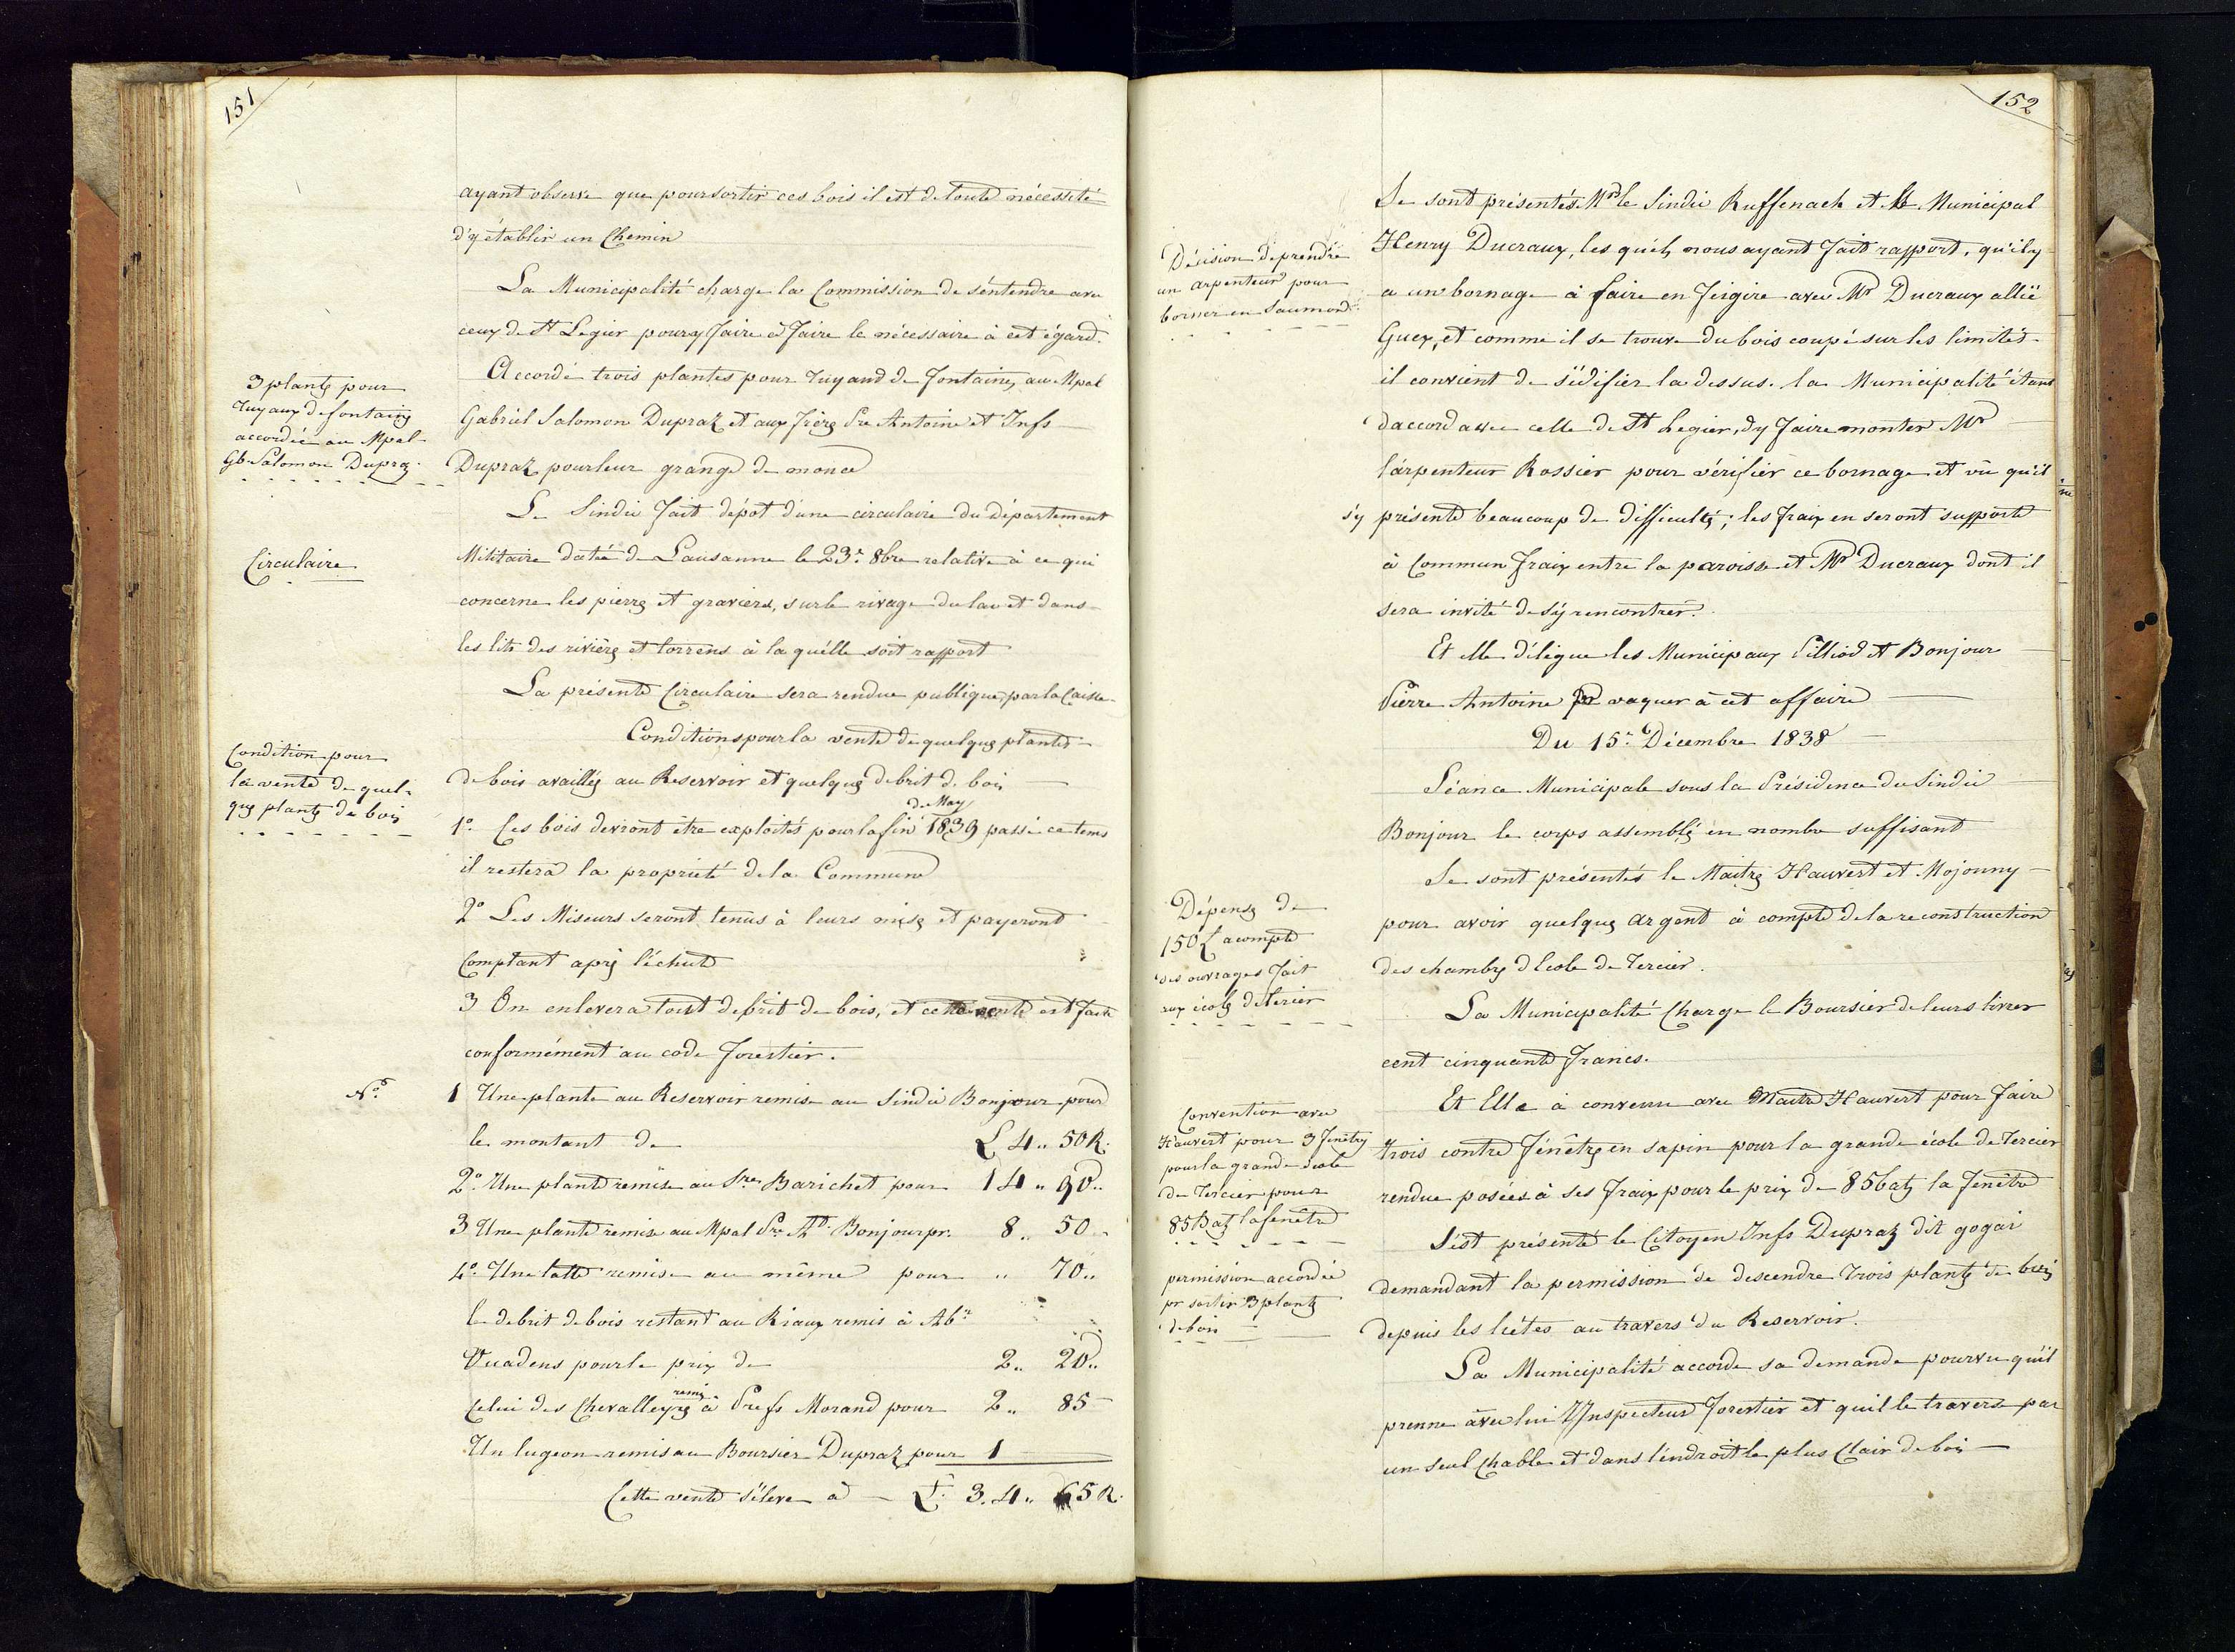 151
ayant observe que pour sortir ces bois il est de toute nécessité
d'y établir un Chemin
La Municipalité charge la Commission de s'entendre avec
ceux de St Legier pour y faire & faire le nécessaire à cet égard.
3 plantes pour
Tuyaux de fontaines
accordée au Mpal
Gb Salomon Dupraz.
Accordé trois plantes pour Tuyaud de fontaines au Mpal
Gabriel Salomon Dupraz et aux frères Pre Antoine et Jnfs
Dupraz pour leur grange de
Circulaire
Le Sindic fait dépot d'une circulaire du Département
Militaire datée de Lausanne le 23e 8bre relative à ce qui
concerne les pierres et graviers, sur le rivage du lac et dans
les lits des rivières et torrens à la quélle soit rapport
La présente Circulaire sera rendue publique, par la Caisse
Condition pour
la vente de quel-
ques plantes de bois
Conditions pour la vente de quelques plantes
de bois availlés au Reservoir et quelques debrit de bois
1o Ces bois devront être exploités pour la fin de May 1839 passé ce tems
il restera la propriété de la Commune
2o Les Miseurs seront tenus à leurs mises et payeront
Comptant après l'échute
3 On enlevera tout debrit de bois, et cette vente est faite
conformément au code forestier.
No
1 Une plante au Reservoir remise au Sindic Bonjour pour
le montant de L 4.. 50 R.
2o Une plante remise au Sr Barichet pour 14 .. 90..
3 Une plante remise au Mpal Pre At. Bonjour pr. 8.. 50..
4o Une latte remise au même pour .. 70..
le debrit de bois restant au Riaux remis à Abm
Vuadens pour le prix de 2.. 20..
Celui des Chevalleyres remis à Prefs Morand pour 2.. 85
Un lugeon remis au Boursier Dupraz pour 1
Cette vente s'éleve à L. 3.4.. 65 R.
152
Se sont présentés Mrs le Sindic Ruffenach et le Municipal
Décision de prendre
un arpenteur pour
borner en Saumond
Henry Ducraux, les quéls nous ayant fait rapport, qu'il y
a une bornage à faire en Feigire avec Mr Ducraux allié
Guex, et comme il se trouve du bois coupé sur les limites
il convient de s'édifier la dessus. la Municipalité étant
daccord avec celle de St Legier, dy faire monter Mr
l'arpenteur Rossier pour vérifier ce bornage et vu qu'il
s'y présente beaucoup de difficultés; les fraix en seront supporté
à Commun fraix entre la paroisse et Mr Ducraux dont il
sera invité de s'y rencontrer.
Et elle déligue les Municipaux Pilliod et Bonjour
Pierre Antoine pr vaquer à cet affaire
Du 15e Décembre 1838
Séance Municipale sous la Présidence du Sindic
Bonjour le corps assemblés en nombre suffisant
Dépense de
150 L acompte
des ouvrages fait
aux écoles de Tercier
Se sont présentés le Maitres Hauvert et Mojonny
pour avoir quelques argent à compte de la reconstruction
des chambres d'Ecole de Tercier.
La Municipalité Charge le Boursier de leurs livrer
cent cinquante francs.
Convention avec
Hauvert pour 3 fenêtres
pour la grande école
de Tercier pour
85 Batz la fenêtre
Et Elle à convenu avec Maitre Hauvert pour faire
trois contre fénêtres en sapin pour la grande école de Tercier
rendue posées à ses fraix pour le prix de 85 batz la fenêtre
permission accordée
pr sortir 3 plantes
de bois
S'est présenté le Citoyen Jnfs Dupraz dit gogai
demandant la permission de descendre trois plantes de bois
depuis les liètes au travers du Reservoir.
La Municipalité accorde sa demande pourvu qu'il
prenne avec lui l'Inspecteur forestier et quil le traverse par
un seul Chable et dans l'endroit le plus Clair de bois